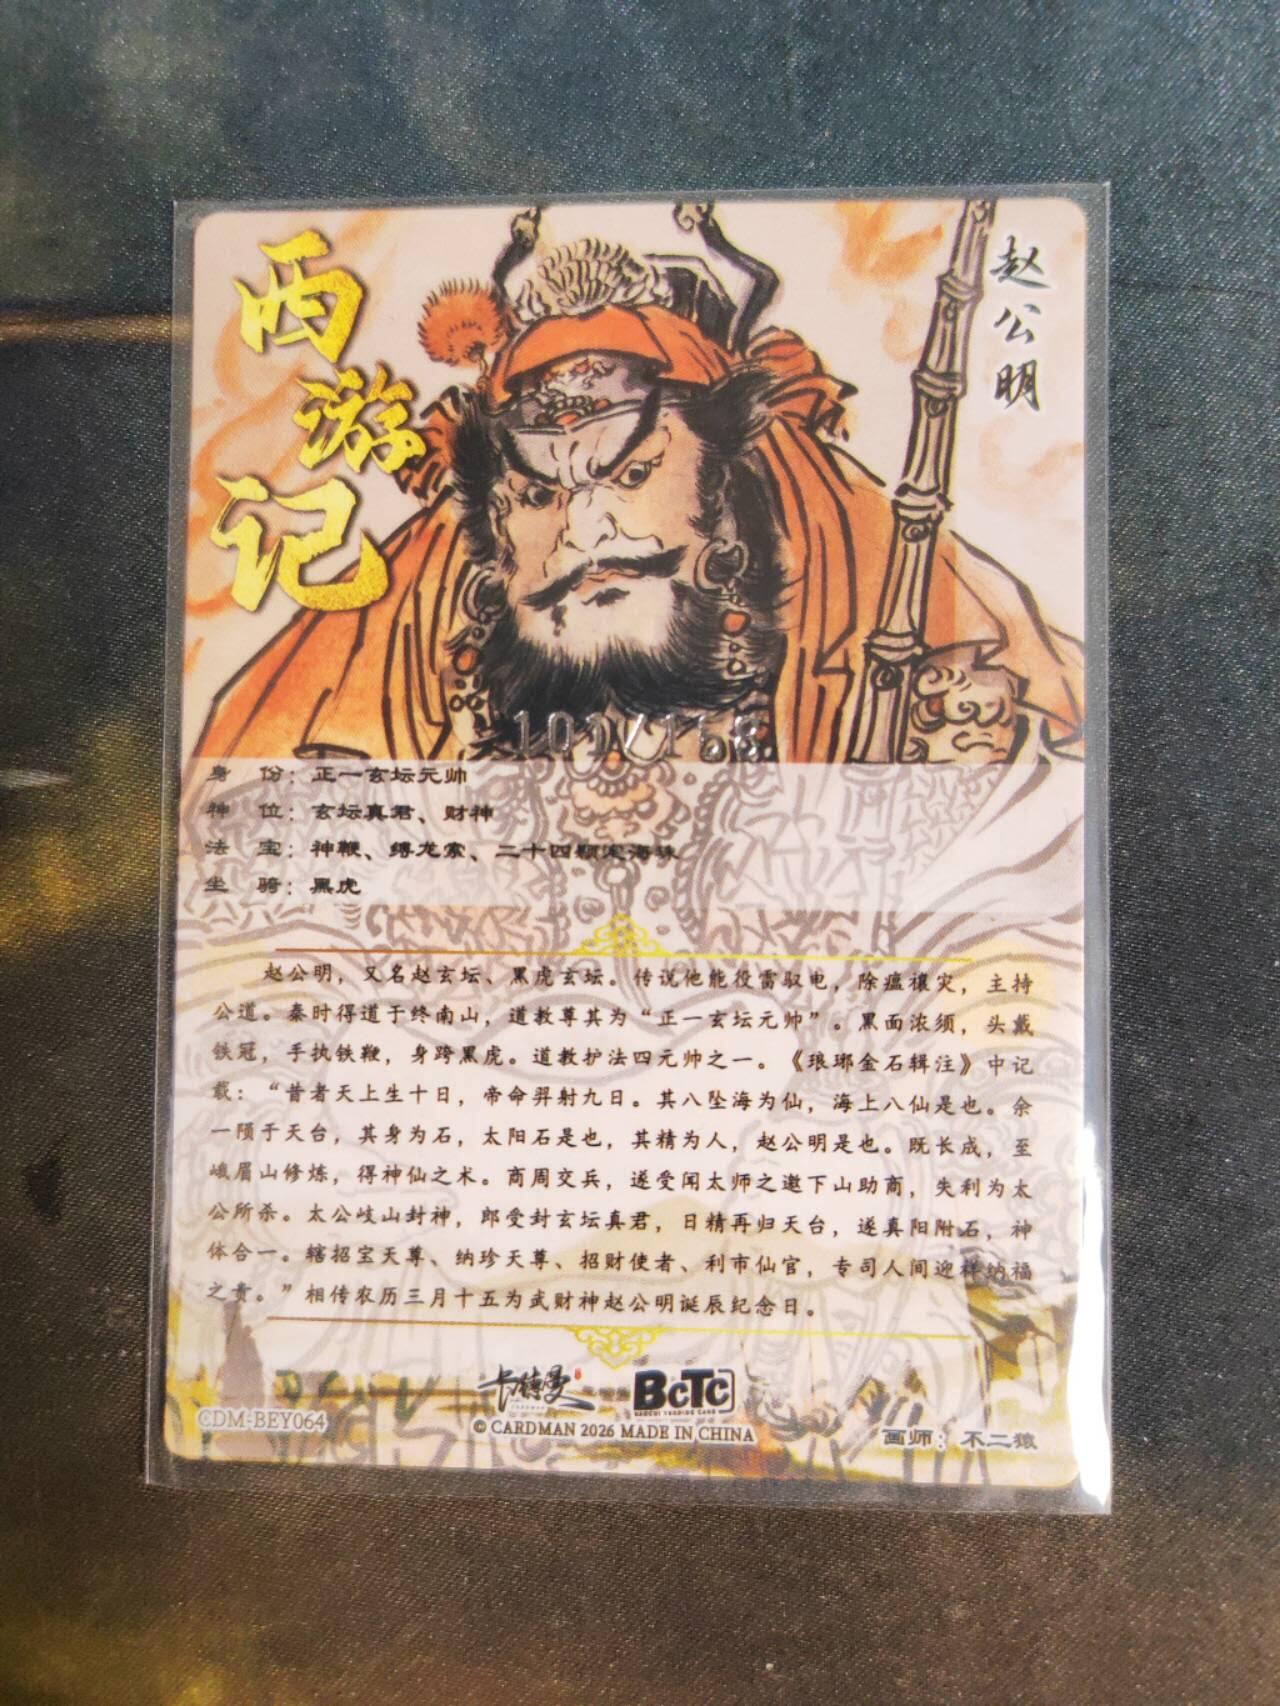 西游记
赵公明
101/168
身 份：正一玄坛元帅
神 位：玄坛真君、财神
法 宝：神鞭、缚龙索、二十四颗定海珠
坐 骑：黑虎
赵公明，又名赵玄坛、黑虎玄坛。传说他能役雷驭电，除瘟禳灾，主持
公道。秦时得道于终南山，道教尊其为“正一玄坛元帅”。黑面浓须，头戴
铁冠，手执铁鞭，身跨黑虎。道教护法四元帅之一。《琅琊金石辑注》中记
载：“昔者天上生十日，帝命羿射九日。其八坠海为仙，海上八仙是也。余
一陨于天台，其身为石，太阳石是也，其精为人，赵公明是也。既长成，至
峨眉山修炼，得神仙之术。商周交兵，遂受闻太师之邀下山助商，失利为太
公所杀。太公岐山封神，郎受封玄坛真君，日精再归天台，遂真阳附石，神
体合一。辖招宝天尊、纳珍天尊、招财使者、利市仙官，专司人间迎祥纳福
之责。”相传农历三月十五为武财神赵公明诞辰纪念日。
卡德曼
BCTC
© CARDMAN 2026 MADE IN CHINA
CDM-BEY064
画师：不二猿